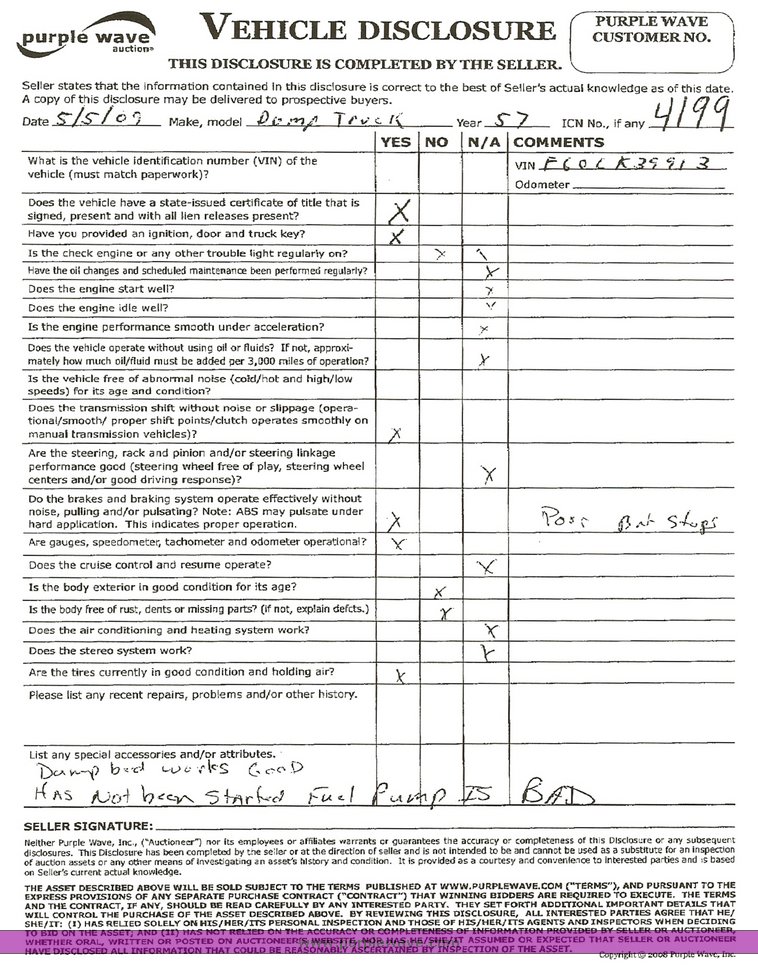 purple wave
auction®
VEHICLE DISCLOSURE
PURPLE WAVE
CUSTOMER NO.
THIS DISCLOSURE IS COMPLETED BY THE SELLER.
Seller states that the information contained in this disclosure is correct to the best of Seller's actual knowledge as of this date.
A copy of this disclosure may be delivered to prospective buyers.
Date 5/5/09 Make, model Dump Truck Year 57 ICN No., if any 4199
YES NO N/A COMMENTS
What is the vehicle identification number (VIN) of the
vehicle (must match paperwork)?
VIN F60CK39913
Odometer
Does the vehicle have a state-issued certificate of title that is
signed, present and with all lien releases present? X
Have you provided an ignition, door and truck key? X
Is the check engine or any other trouble light regularly on? X
Have the oil changes and scheduled maintenance been performed regularly? X
Does the engine start well? X
Does the engine idle well? X
Is the engine performance smooth under acceleration? X
Does the vehicle operate without using oil or fluids? If not, approxi-
mately how much oil/fluid must be added per 3,000 miles of operation? X
Is the vehicle free of abnormal noise (cold/hot and high/low
speeds) for its age and condition?
Does the transmission shift without noise or slippage (opera-
tional/smooth/ proper shift points/clutch operates smoothly on
manual transmission vehicles)? X
Are the steering, rack and pinion and/or steering linkage
performance good (steering wheel free of play, steering wheel
centers and/or good driving response)? X
Do the brakes and braking system operate effectively without
noise, pulling and/or pulsating? Note: ABS may pulsate under
hard application. This indicates proper operation. X But Stops
Are gauges, speedometer, tachometer and odometer operational? X
Does the cruise control and resume operate? X
Is the body exterior in good condition for its age? X
Is the body free of rust, dents or missing parts? (if not, explain defcts.) X
Does the air conditioning and heating system work? X
Does the stereo system work? X
Are the tires currently in good condition and holding air? X
Please list any recent repairs, problems and/or other history.
List any special accessories and/or attributes.
Dump bed works GooD
HAS Not been Started Fuel Pump IS BAD
SELLER SIGNATURE:
Neither Purple Wave, Inc., ("Auctioneer") nor its employees or affiliates warrants or guarantees the accuracy or completeness of this Disclosure or any subsequent
disclosures. This Disclosure has been completed by the seller or at the direction of seller and is not intended to be and cannot be used as a substitute for an inspection
of auction assets or any other means of investigating an asset's history and condition. It is provided as a courtesy and convenience to interested parties and is based
on Seller's current actual knowledge.
THE ASSET DESCRIBED ABOVE WILL BE SOLD SUBJECT TO THE TERMS PUBLISHED AT WWW.PURPLEWAVE.COM ("TERMS"), AND PURSUANT TO THE
EXPRESS PROVISIONS OF ANY SEPARATE PURCHASE CONTRACT ("CONTRACT") THAT WINNING BIDDERS ARE REQUIRED TO EXECUTE. THE TERMS
AND THE CONTRACT, IF ANY, SHOULD BE READ CAREFULLY BY ANY INTERESTED PARTY. THEY SET FORTH ADDITIONAL IMPORTANT DETAILS THAT
WILL CONTROL THE PURCHASE OF THE ASSET DESCRIBED ABOVE. BY REVIEWING THIS DISCLOSURE, ALL INTERESTED PARTIES AGREE THAT HE/
SHE/IT: (I) HAS RELIED SOLELY ON HIS/HER/ITS PERSONAL INSPECTION AND THOSE OF HIS/HER/ITS AGENTS AND INSPECTORS WHEN DECIDING
TO BID ON THE ASSET; AND (II) HAS NOT RELIED ON THE ACCURACY OR COMPLETENESS OF INFORMATION PROVIDED BY SELLER OR AUCTIONEER,
WHETHER ORAL, WRITTEN OR POSTED ON AUCTIONEER'S WEBSITE, NOR HAS HE/SHE/IT ASSUMED OR EXPECTED THAT SELLER OR AUCTIONEER
HAVE DISCLOSED ALL INFORMATION THAT COULD BE REASONABLY ASCERTAINED BY INSPECTION OF THE ASSET.
Copyright © 2008 Purple Wave, Inc.